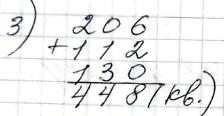 3) 206
+ 112
130
448 (кв.)